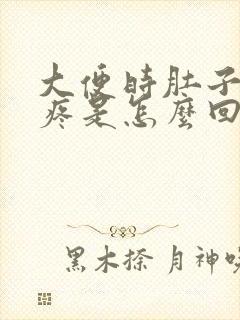 大便时肚子
疼是怎麼回
黑木捺 月神吸